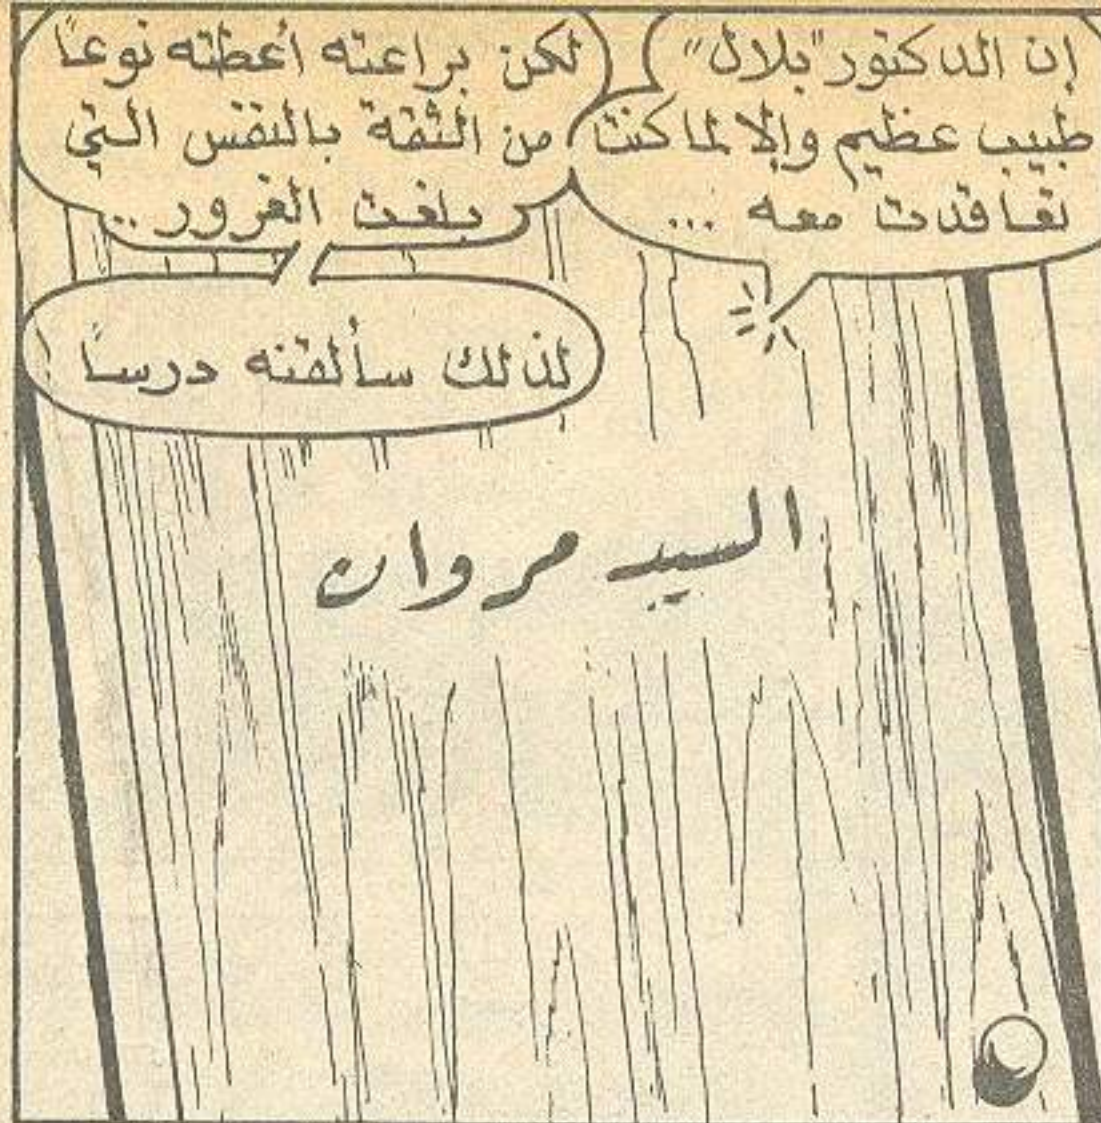 إن الدكتور "بلال"
طبيب عظيم وإلا لما كنت
تعاقدت معه ...
لكن براعته أعطته نوعاً
من الثقة بالنفس التي
بلغت الغرور ..
لذلك سألقنه درساً
السيد مروان